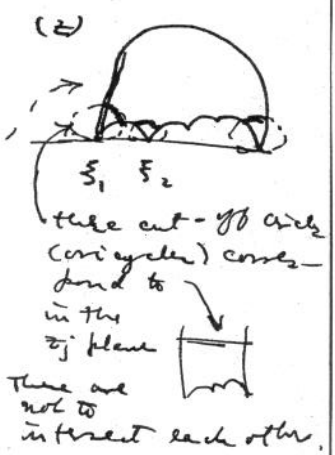 (z)
ξ₁ ξ₂
these cut-off circles
(oricycles) corres-
pond to
in the
zj plane
These are
not to
intersect each other.